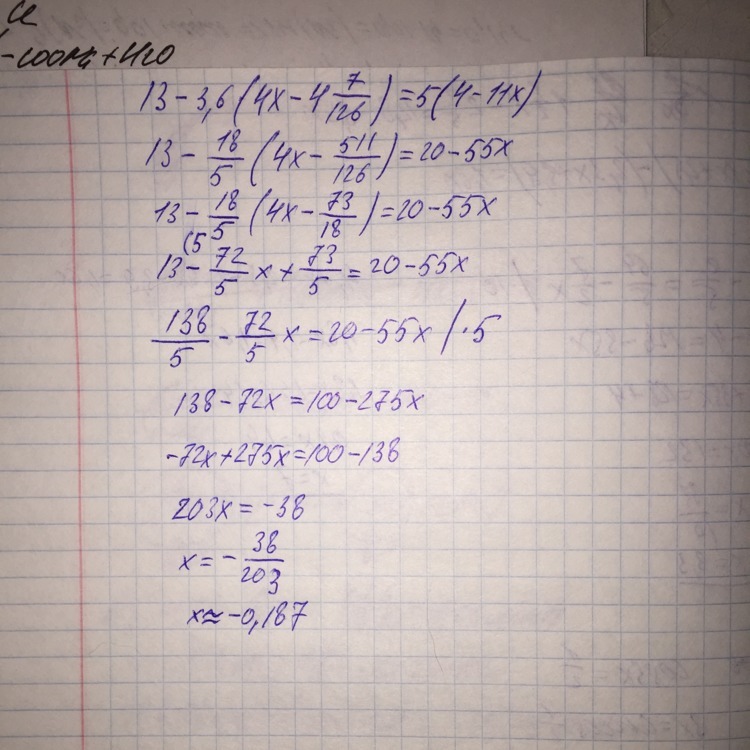 13 - 3,6(4x - 4 7/126) = 5(4 - 11x)
13 - 18/5 (4x - 511/126) = 20 - 55x
13 - 18/5 (4x - 73/18) = 20 - 55x
(5
13 - 72/5 x + 73/5 = 20 - 55x
138/5 - 72/5 x = 20 - 55x /·5
138 - 72x = 100 - 275x
-72x + 275x = 100 - 138
203x = -38
x = - 38/203
x ≈ -0,187